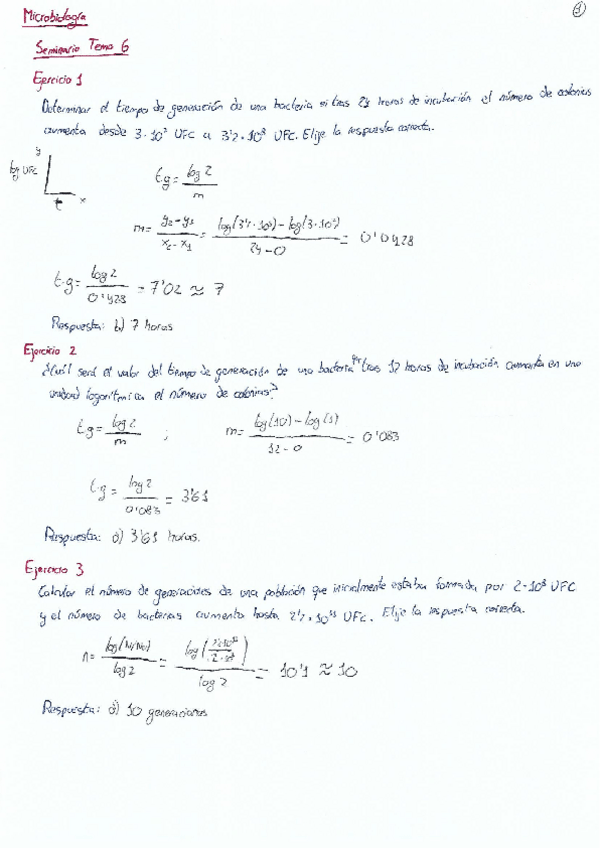 Microbiología
1
Seminario Tema 6
Ejercicio 1
Determinar el tiempo de generación de una bacteria si tras 24 horas de incubación el número de colonias
aumenta desde 3·10⁷ UFC a 3'2·10⁸ UFC. Elije la respuesta correcta.
y
log UFC
t x
t.g = log 2 / m
m = y₂-y₁ / x₂-x₁ = log(3'2·10⁸) - log(3·10⁷) / 24-0 = 0'0428
t.g = log 2 / 0'0428 = 7'02 ≈ 7
Respuesta: b) 7 horas
Ejercicio 2
¿Cuál será el valor del tiempo de generación de una bacteria que tras 12 horas de incubación aumenta en una
unidad logarítmica el número de colonias?
t.g = log 2 / m ; m = log(10) - log(1) / 12-0 = 0'083
t.g = log 2 / 0'083 = 3'61
Respuesta: a) 3'61 horas.
Ejercicio 3
Calcular el número de generaciones de una población que inicialmente estaba formada por 2·10⁸ UFC
y el número de bacterias aumento hasta 2'2·10¹¹ UFC. Elije la respuesta correcta.
n = log(N/No) / log 2 = log(2'2·10¹¹ / 2·10⁸) / log 2 = 10'1 ≈ 10
Respuesta: a) 10 generaciones